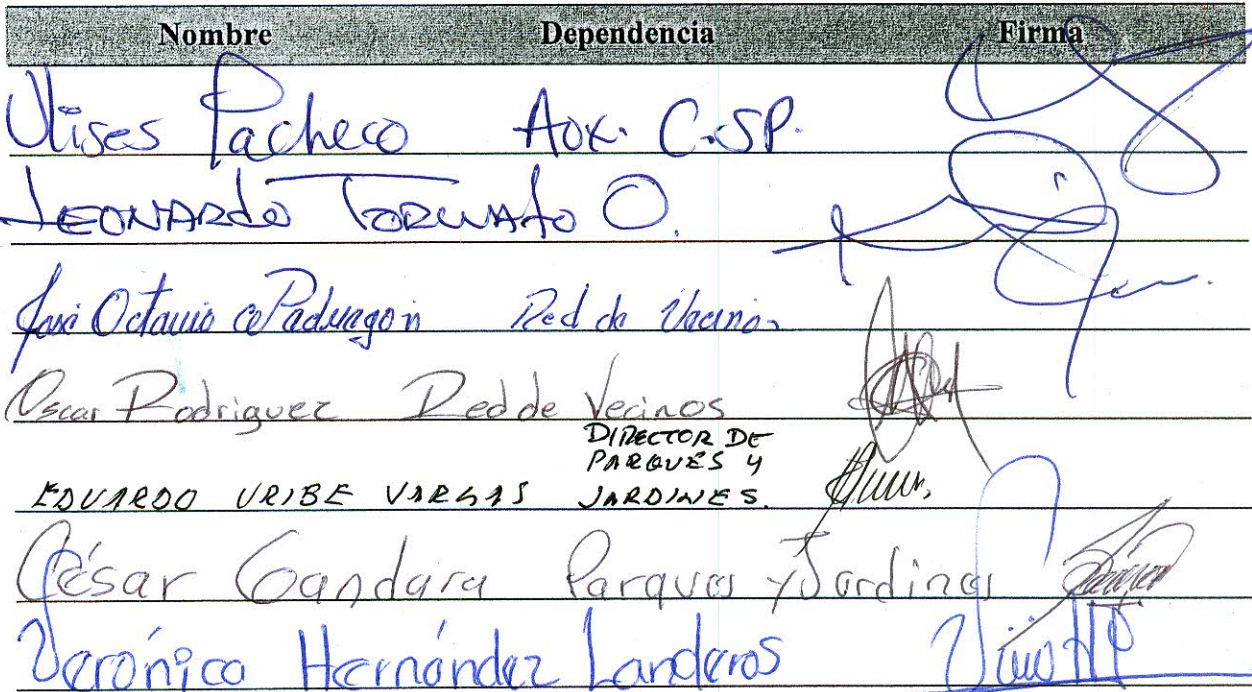 Nombre Dependencia Firma
Ulises Pacheco Aux. C.SP.
LEONARdo TORWATO O.
José Octavio Red de Vecinos
Oscar Rodriguez Red de Vecinos
DIRECTOR DE
PARQUES Y
EDUARDO URIBE VARGAS JARDINES.
César Gandara Parques y Jardines
Verónica Hernández Landeros